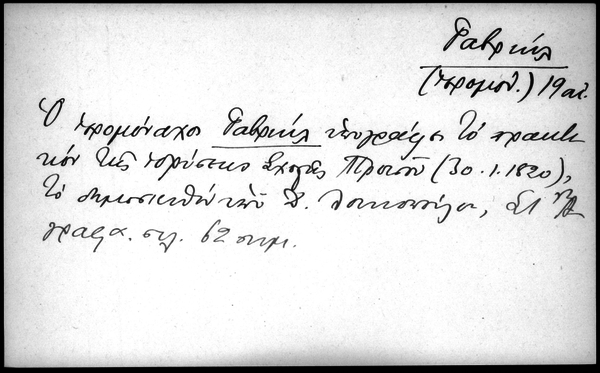 Γαβριήλ
(ἱερομον.) 19 αἰ.
Ὁ ἱερομόναχος Γαβριήλ ὑπογράφει τό πρακτι-
κόν τῆς ἱδρύσεως Σχολῆς (30.1.1820),
τό δημοσιευθέν ὑπό
σελ. 62 σημ.